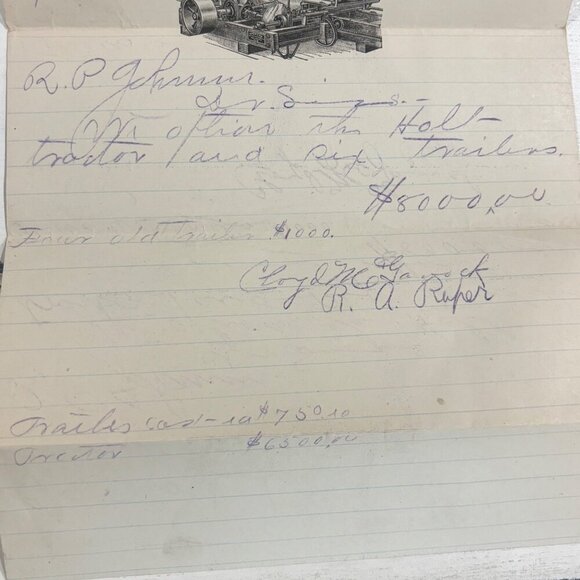 R. P. Johnson.
Dr Sir
We option the Holt
tractor and six trailers.
$8000,00
Four old trailers $1000.
Cloyd
R. A. Ruper
Trailers cost ea $750.00
Tractor $6500,00